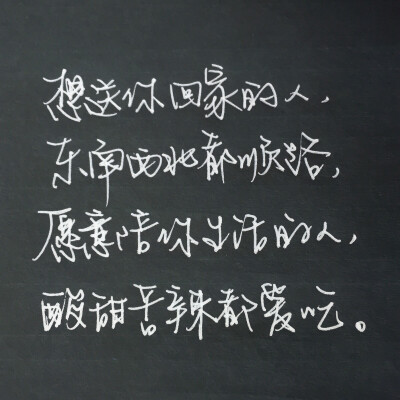 想送你回家的人，
东南西北都顺路，
愿意陪你生活的人，
酸甜苦辣都爱吃。